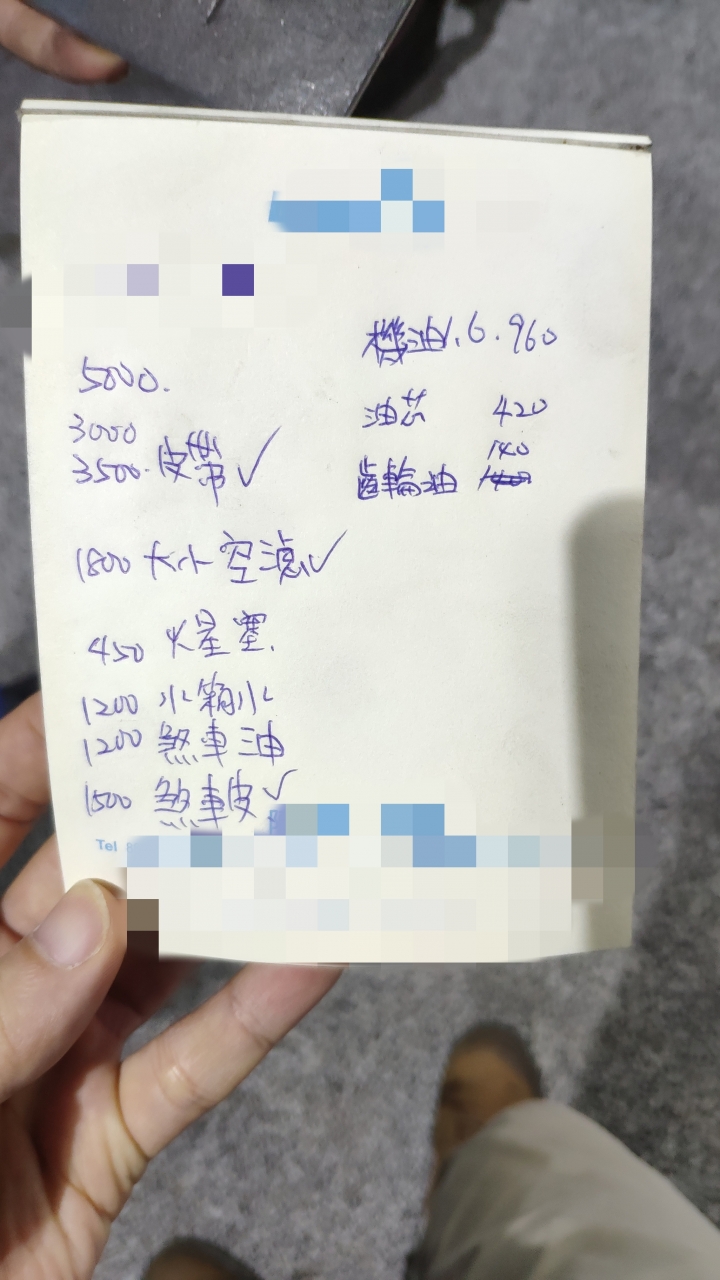 5000.
3000
3500. 皮帶 ✓
1800 大小 空濾 ✓
450 火星塞.
1200 水箱水
1200 煞車油
1500 煞車皮 ✓
Tel
機油1.6. 960
油芯 420
140
齒輪油